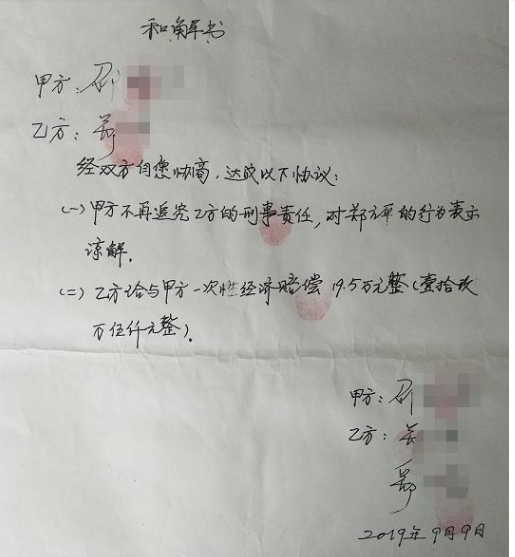 和解书
甲方：邵
乙方：郑
经双方自愿协商，达成以下协议：
(一)甲方不再追究乙方的刑事责任，对郑立平的行为表示
谅解。
(二)乙方给与甲方一次性经济赔偿19.5万元整(壹拾玖
万伍仟元整)。
甲方：邵
乙方：
郑
2019年9月9日